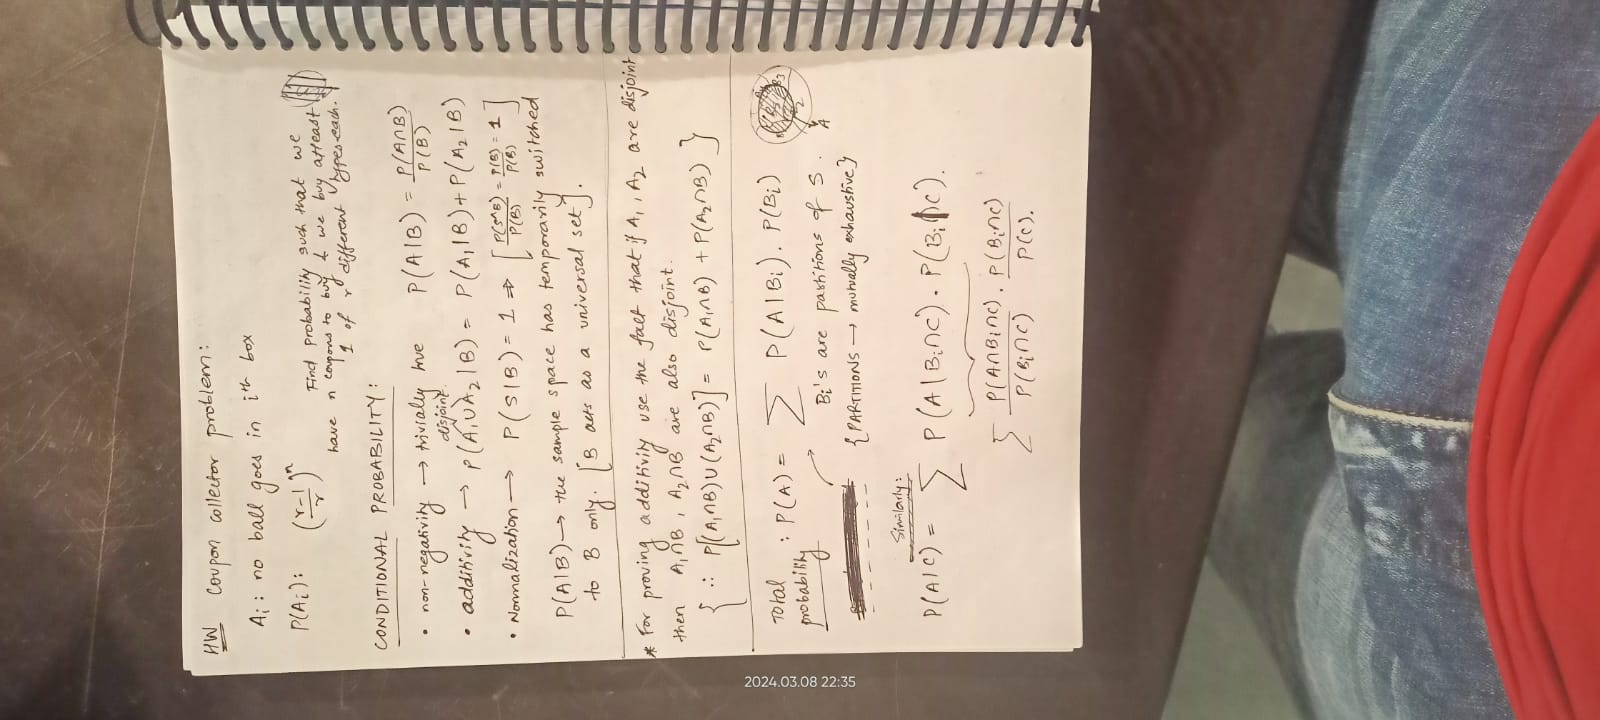 HW Coupon collector problem:
Ai : no ball goes in ith box
P(Ai): ((r-1)/r)^n
Find probability such that we
have n coupons to buy & we buy atleast
1 of r different types each.
CONDITIONAL PROBABILITY:
• non-negativity → trivially true P(A|B) = P(A∩B)/P(B)
disjoint
• additivity → P(A1∪A2|B) = P(A1|B)+P(A2|B)
• Normalization → P(S|B) = 1 ⇒ [P(S∩B)/P(B) = P(B)/P(B) = 1]
P(A|B) → the sample space has temporarily switched
to B only. [B acts as a universal set].
* For proving additivity use the fact that if A1, A2 are disjoint
then A1∩B, A2∩B are also disjoint.
{ ∴ P[(A1∩B)∪(A2∩B)] = P(A1∩B) + P(A2∩B) }
Total
probability : P(A) = Σ P(A|Bi). P(Bi)
Bi's are partitions of S.
{PARTITIONS → mutually exhaustive}
A
Similarly:
P(A|C) = Σ P(A|Bi∩C). P(Bi|C).
Σ P(A∩Bi∩C)/P(Bi∩C) . P(Bi∩C)/P(C).
2024.03.08 22:35